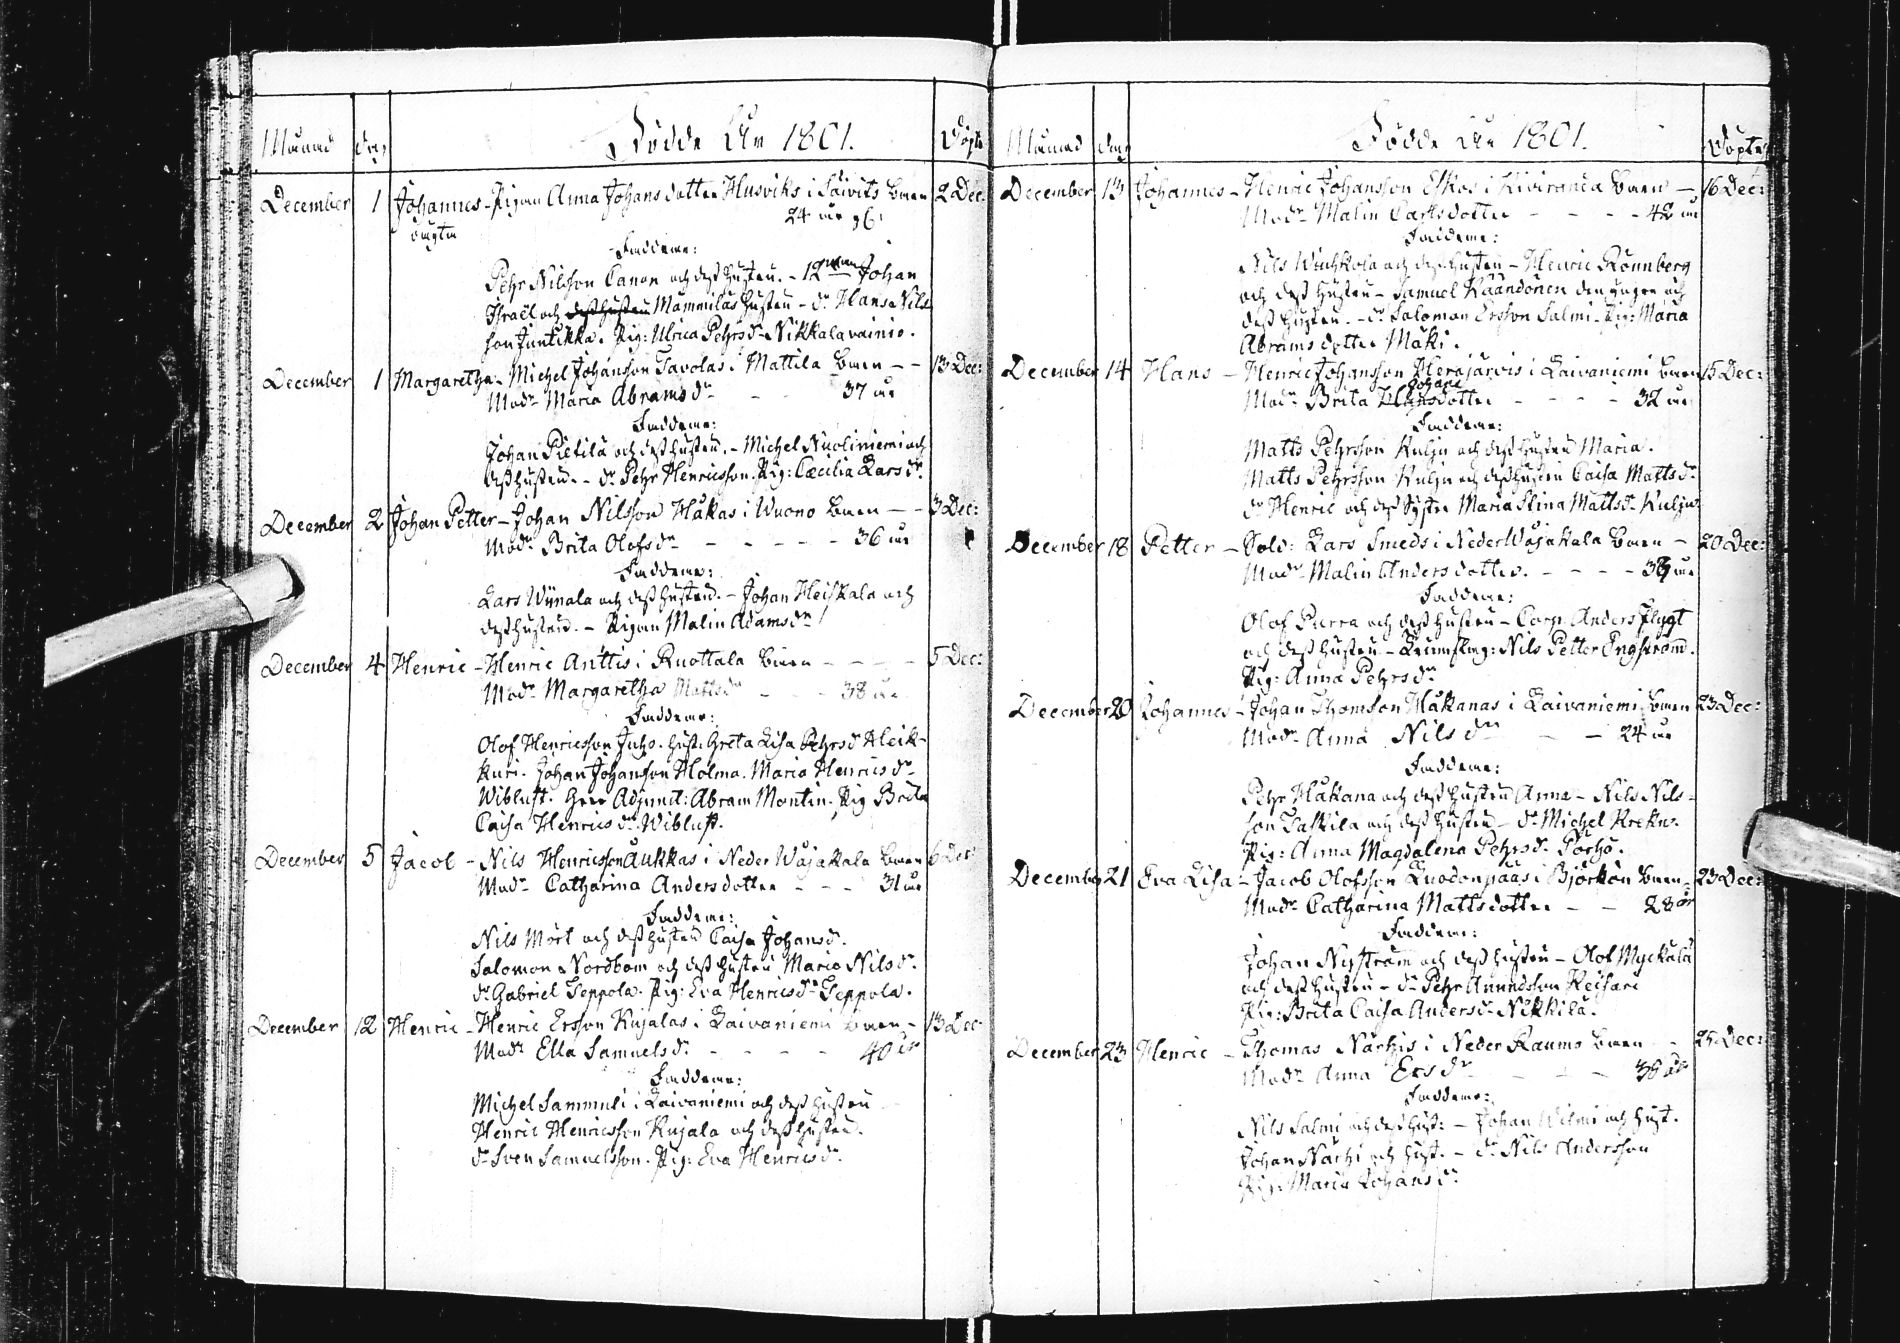 Månad dag Födde År 1801. Döpte
December 1 Johannes - Pigan Anna Johansdotter Husviks i Säivits barn 2 Dec:
oägta 24 år g.
Faddrar:
Pehr Nilsson Canon och dess hustru. - 12 man Johan
Israël och dess hustru Mämmiläs hustru - dr. Hans Nils
son Juntikka. Pig: Ulrica Pehrsdr Nikkalavainio.
December 1 Margaretha - Michel Johansson Tavolas i Mattila barn - - 13 Dec:
Modr Maria Abramsdr - - 37 år
Faddrar:
Johan Pietilä och dess hustru. - Michel Nuoliniemi och
dess hustru. - dr. Pehr Henricsson. Pig: Cæcilia Larsdr.
December 2 Johan Petter - Johan Nilsson Håkas i Wuono barn - - 3 Dec:
Modr Brita Olofsdr - - - - - 36 år
Faddrar:
Lars Wiinala och dess hustru. - Johan Heiskala och
dess hustru. - Pigan Malin Adamsdr
December 4 Henric - Henric Anttis i Ruottala barn - - - - 5 Dec:
Modr Margaretha Mattsdr - - - 38 år
Faddrar:
Olof Henricsson Juho. hust: Greta Lisa Pehrsdr Kleik-
kuri. Johan Johansson Holma. Maria Henricsdr
Wiblust. Adjunct: Abram Montin. Pig Brita
Caisa Henricsdr Wiblust.
December 5 Jacob - Nils Henricsson Aukkas i Neder Wojakala barn 6 Dec:
Modr Catharina Andersdotter - - - 31 år
Faddrar:
Nils Mört och dess hustru Caisa Johansdr.
Salomon Nordbom och dess hustru Maria Nilsdr.
dr. Gabriel Seppola. Pig: Eva Henricsdr Seppola.
December 12 Henric - Henric Ersson Kujalas i Laivaniemi barn - 13 Dec:
Modr Ella Samuelsdr. - - - - 40 år
Faddrar:
Michel Sammuli i Laivaniemi och dess hustru
Henric Henricsson Kujala och dess hustru.
dr. Sven Samuelsson. Pig: Eva Henricsdr.
Månad dag Födde År 1801. Döpte
December 13 Johannes - Henric Johansson Eskos i Kiviranda barn - 16 Dec:
Modr Malin Carlsdotter - - - - 42 år
Faddrar:
Nils och dess hustru - Henric Rönnberg
och dess hustru - Samuel Kaandonen den yngre och
dess hustru. - dr. Salomon Ersson Salmi. Pig: Maria
Abramsdotter Mäki.
December 14 Hans - Henric Johansson Herajärvis i Laivaniemi barn 15 Dec:
Johans
Modr Brita Hansdotter - - - - 32 år
Faddrar:
Matts Pehrsson Kulju och dess hustru Maria.
Matts Pehrsson Kulju och dess hustru Caisa Mattsdr.
dr Henric och dess syster Maria Stina Mattsdr Kulju.
December 18 Petter - Sold: Lars Smeds i Neder Wojakala barn - 20 Dec:
Modr Malin Andersdotter. - - - - 39 år
Faddrar:
Olof Purra och dess hustru - Corp: Anders Flygt
och dess hustru. - Nils Petter Engström.
Pig: Anna Pehrsdr
December 20 Johannes - Johan Thomsson Håkanas i Laivaniemi barn 23 Dec:
Modr Anna Nilsdr - - 24 år
Faddrar:
Pehr Håkana och dess hustru Anna - Nils Nils-
son Taskila och dess hustru - dr. Michel Kreku.
Pig: Anna Magdalena Pehrsdr. Pörhö.
December 21 Eva Lisa - Jacob Olofsson Luodonpääs i Björkön barn - 23 Dec:
Modr Catharina Mattsdotter - - 28 år
Faddrar:
Johan Nyström och dess hustru - Olof Myckälä
och dess hustru - dr Pehr Anundsson Keisari
Pig: Brita Caisa Andersdr Nikkilä.
December 23 Henric - Thomas Närhis i Neder Raumo barn - - 25 Dec:
Modr Anna Ersdr - - - 38 år
Faddrar:
Nils Salmi och dess hust: - Johan Wilmi och hust.
Johan Närhi och hust. - dr Nils Andersson
Pig: Maria Johansdr